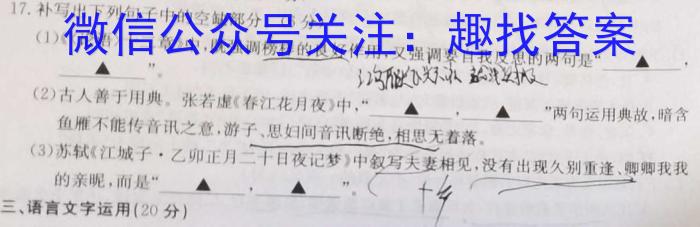 17.补写出下列句子中的空缺部分
微信公众号关注：趣找答案
(1)《 榜样的良好作用，又强调要自我反思的两句是“ ▲ ，
▲ ”。
(2)古人善于用典。张若虚《春江花月夜》中，“ ▲ ， ▲ ”两句运用典故，暗含
鱼雁不能传音讯之意，游子、思妇间音讯断绝，相思无着落。
(3)苏轼《江城子·乙卯正月二十日夜记梦》中叙写夫妻相见，没有出现久别重逢、卿卿我我
的亲昵，而是“ ▲ ， ▲ ”。
三、语言文字运用(20分)